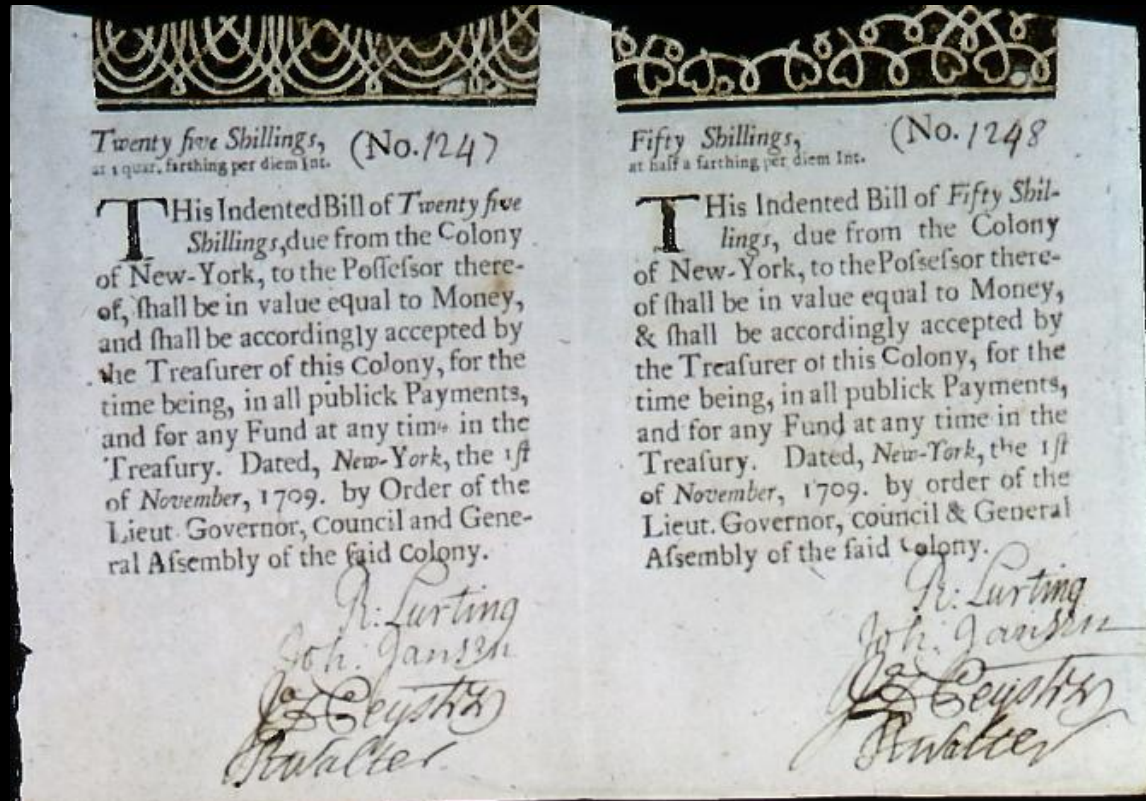 Twenty five Shillings, (No. 1247
at 1 quar. farthing per diem Int.
THis Indented Bill of Twenty five
Shillings, due from the Colony
of New-York, to the Poſſeſsor there-
of, ſhall be in value equal to Money,
and ſhall be accordingly accepted by
the Treaſurer of this Colony, for the
time being, in all publick Payments,
and for any Fund at any time in the
Treaſury. Dated, New-York, the 1ſt
of November, 1709. by Order of the
Lieut. Governor, Council and Gene-
ral Aſsembly of the ſaid Colony.
R: Lurting
Joh: Jansen
JD Peyster
R Walter
Fifty Shillings, (No. 1248
at half a farthing per diem Int.
THis Indented Bill of Fifty Shil-
lings, due from the Colony
of New-York, to the Poſseſsor there-
of ſhall be in value equal to Money,
& ſhall be accordingly accepted by
the Treaſurer of this Colony, for the
time being, in all publick Payments,
and for any Fund at any time in the
Treaſury. Dated, New-York, the 1ſt
of November, 1709. by order of the
Lieut. Governor, council & General
Aſsembly of the ſaid Colony.
R: Lurting
Joh: Jansen
JD Peyster
R Walter